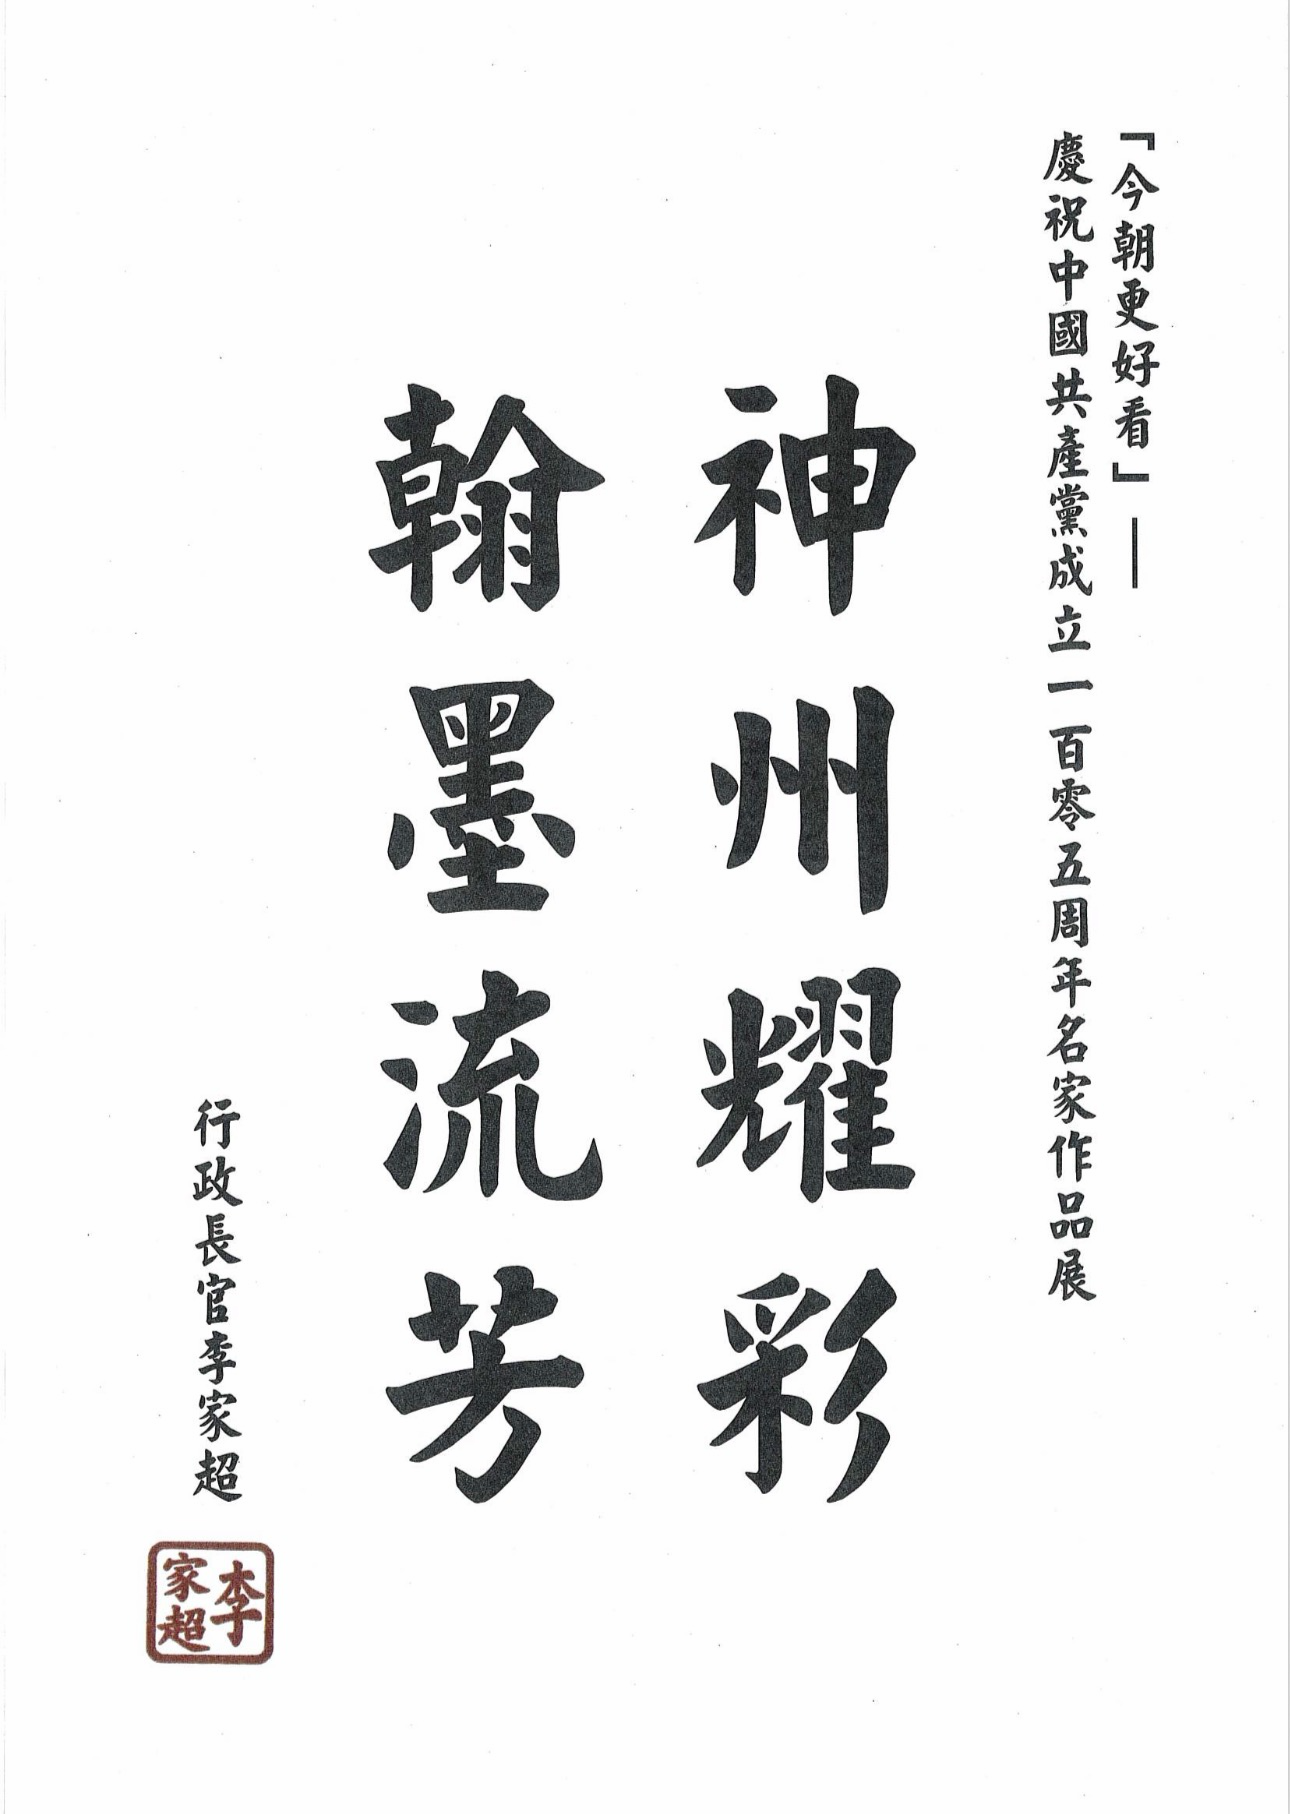 「今朝更好看」——
慶祝中國共產黨成立一百零五周年名家作品展
神州耀彩
翰墨流芳
行政長官李家超
李家超